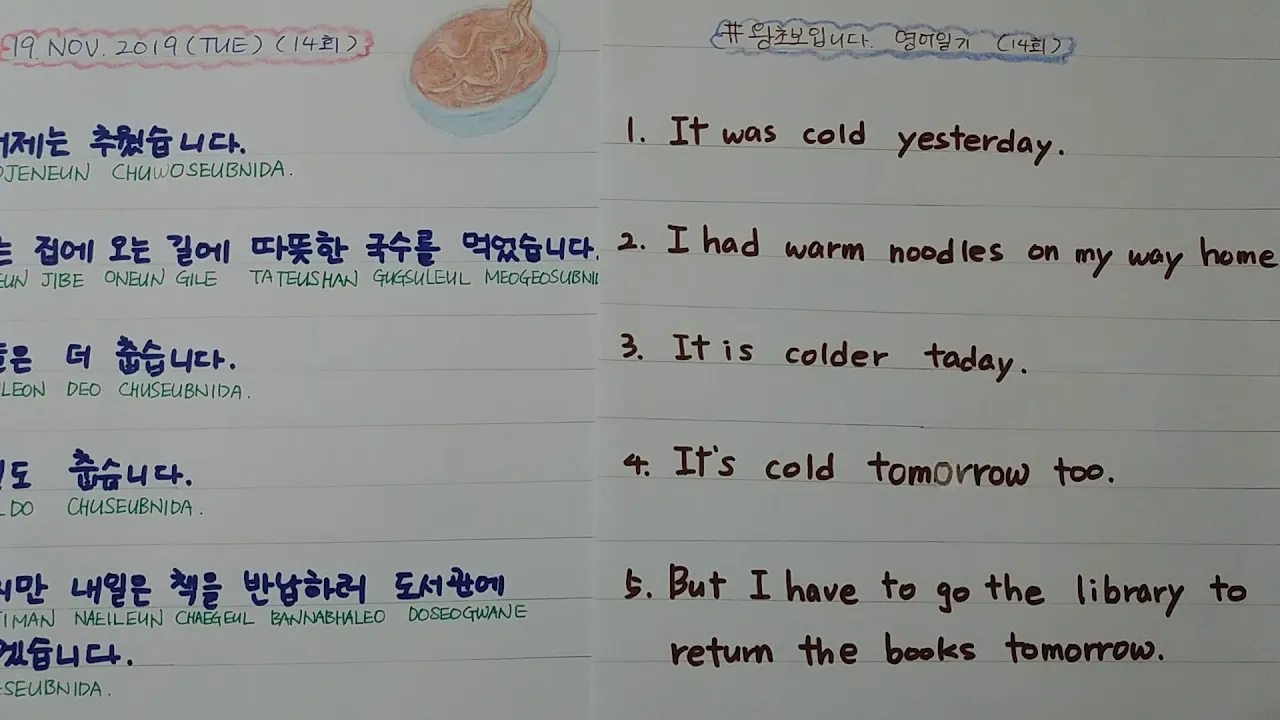 19. NOV. 2019 (TUE) (14회)
추웠습니다.
CHUWOSEUBNIDA.
집에 오는 길에 따뜻한 국수를 먹었습니다.
JIBE ONEUN GILE TATEUSHAN GUGSULEUL
더 춥습니다.
DEO CHUSEUBNIDA.
춥습니다.
CHUSEUBNIDA.
내일은 책을 반납하러 도서관에
NAEILEUN CHAEGEUL BANNABHALEO DOSEOGWANE
#왕초보입니다. 영어일기 (14회)
1. It was cold yesterday.
2. I had warm noodles on my way home
3. It is colder taday.
4. It's cold tomorrow too.
5. But I have to go the library to
return the books tomorrow.